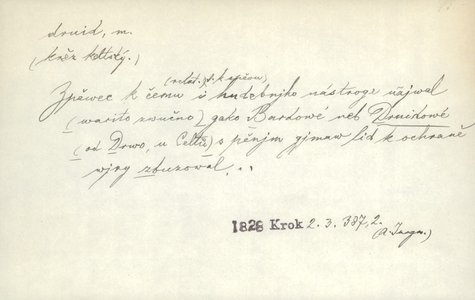 druid, m.
(kněz keltský.)
(relat. t. k zpěvu)
Zpěwec k čemu i hudebnjho nástroge užjwal
(warito zwučno) gako Bardowé neb Druidowé
(od Drwo, u Celtů) s pěnjm gjmaw lid k ochraně
wjry zbuzowal...
1828 Krok 2. 3. 387, 2.
(A. Jungm.)